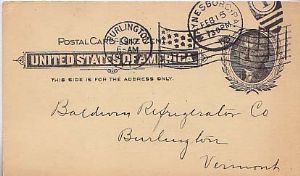 BURLINGTON
6-AM
WAYNESBURG, PA.
FEB 15
POSTAL CARD-ONE CENT.
UNITED STATES OF AMERICA
THIS SIDE IS FOR THE ADDRESS ONLY.
Baldwin Refrigerator Co
Burlington
Vermont